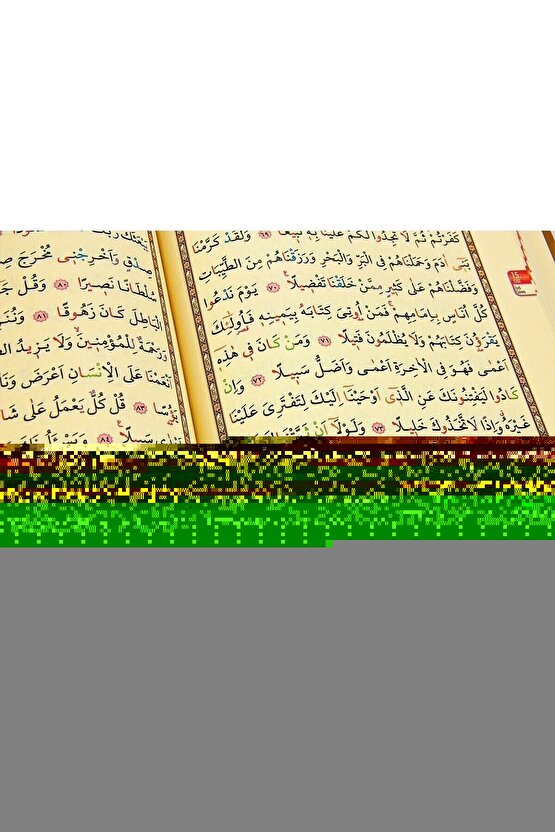 كَفَرْتُمْ ثُمَّ لَا تَجِدُوا لَكُمْ عَلَيْنَا بِهِ تَبِيعًا ﴿٦٩﴾ وَلَقَدْ كَرَّمْنَا
بَنِي اٰدَمَ وَحَمَلْنَاهُمْ فِي الْبَرِّ وَالْبَحْرِ وَرَزَقْنَاهُمْ مِنَ الطَّيِّبَاتِ
وَفَضَّلْنَاهُمْ عَلٰى كَثِيرٍ مِمَّنْ خَلَقْنَا تَفْضِيلًا ﴿٧٠﴾ يَوْمَ نَدْعُوا
كُلَّ اُنَاسٍ بِاِمَامِهِمْ فَمَنْ اُوتِيَ كِتَابَهُ بِيَمِينِهِ فَاُولٰئِكَ
يَقْرَؤُنَ كِتَابَهُمْ وَلَا يُظْلَمُونَ فَتِيلًا ﴿٧١﴾ وَمَنْ كَانَ فِي هٰذِهِ
اَعْمٰى فَهُوَ فِي الْاٰخِرَةِ اَعْمٰى وَاَضَلُّ سَبِيلًا ﴿٧٢﴾ وَاِنْ
كَادُوا لَيَفْتِنُونَكَ عَنِ الَّذِي اَوْحَيْنَا اِلَيْكَ لِتَفْتَرِيَ عَلَيْنَا
غَيْرَهُ وَاِذًا لَاتَّخَذُوكَ خَلِيلًا ﴿٧٣﴾ وَلَوْلَا اَنْ
صِدْقٍ وَاَخْرِجْنِي مُخْرَجَ
سُلْطَانًا نَصِيرًا ﴿٨٠﴾ وَقُلْ
الْبَاطِلَ كَانَ زَهُوقًا ﴿٨١﴾
وَرَحْمَةٌ لِلْمُؤْمِنِينَ وَلَا يَزِيدُ
اَنْعَمْنَا عَلَى الْاِنْسَانِ اَعْرَضَ
﴿٨٣﴾ قُلْ كُلٌّ يَعْمَلُ عَلٰى
سَبِيلًا ﴿٨٤﴾
15